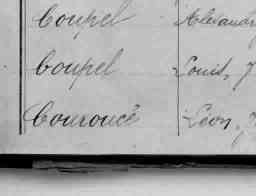 Coupel Alexandr
Coupel Louis, J
Couroucé Léon, J